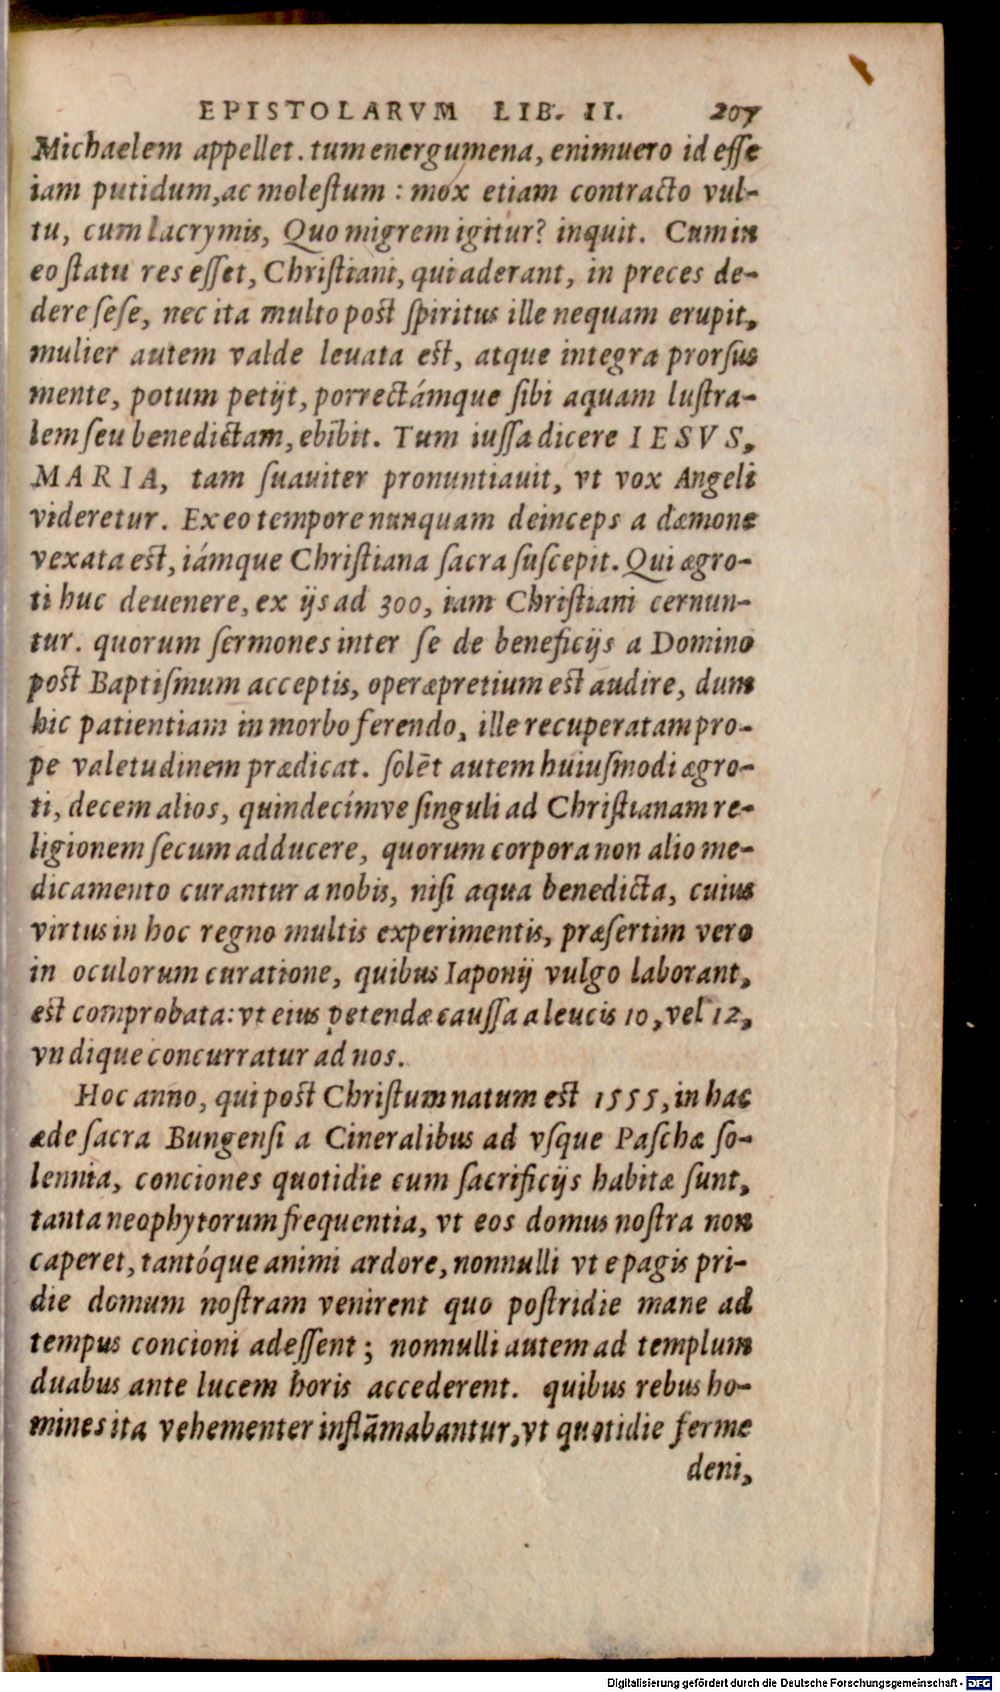 EPISTOLARVM LIB. II. 207
Michaelem appellet. tum energumena, enimuero id eſſe
iam putidum, ac moleſtum : mox etiam contracto vul-
tu, cum lacrymis, Quo migrem igitur? inquit. Cum in
eo ſtatu res eſſet, Chriſtiani, qui aderant, in preces de-
dere ſeſe, nec ita multo poſt ſpiritus ille nequam erupit,
mulier autem valde leuata eſt, atque integra prorſus
mente, potum petijt, porrectámque ſibi aquam luſtra-
lem ſeu benedictam, ebibit. Tum iuſſa dicere IESVS,
MARIA, tam ſuauiter pronuntiauit, vt vox Angeli
videretur. Ex eo tempore nunquam deinceps a dæmone
vexata eſt, iámque Chriſtiana ſacra ſuſcepit. Qui ægro-
ti huc deuenere, ex ijs ad 300, iam Chriſtiani cernun-
tur. quorum ſermones inter ſe de beneficijs a Domino
poſt Baptiſmum acceptis, operæpretium eſt audire, dum
hic patientiam in morbo ferendo, ille recuperatam pro-
pe valetudinem prædicat. ſolēt autem huiuſmodi ægro-
ti, decem alios, quindecímve ſinguli ad Chriſtianam re-
ligionem ſecum adducere, quorum corpora non alio me-
dicamento curantur a nobis, niſi aqua benedicta, cuius
virtus in hoc regno multis experimentis, præſertim vero
in oculorum curatione, quibus Iaponij vulgo laborant,
eſt comprobata: vt eius petendæ cauſſa a leucis 10, vel 12,
vndique concurratur ad nos.
Hoc anno, qui poſt Chriſtum natum eſt 1555, in hac
æde ſacra Bungenſi a Cineralibus ad vſque Paſchæ ſo-
lennia, conciones quotidie cum ſacrificijs habitæ ſunt,
tanta neophytorum frequentia, vt eos domus noſtra non
caperet, tantóque animi ardore, nonnulli vt e pagis pri-
die domum noſtram venirent quo poſtridie mane ad
tempus concioni adeſſent ; nonnulli autem ad templum
duabus ante lucem horis accederent. quibus rebus ho-
mines ita vehementer inflāmabantur, vt quotidie ferme
deni,
Digitalisierung gefördert durch die Deutsche Forschungsgemeinschaft - DFG